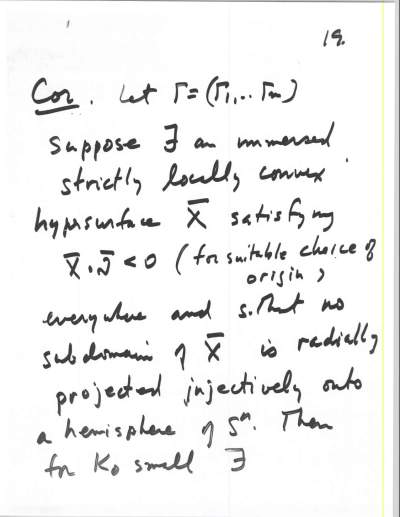 19.
Cor. Let Γ = (Γ₁,.. Γₘ)
Suppose ∃ an immersed
strictly locally convex
hypersurface X̄ satisfying
X̄.ν̄ < 0 (for suitable choice of
origin)
everywhere and s.that no
subdomain of X̄ is radially
projected injectively onto
a hemisphere of Sⁿ. Then
for K₀ small ∃